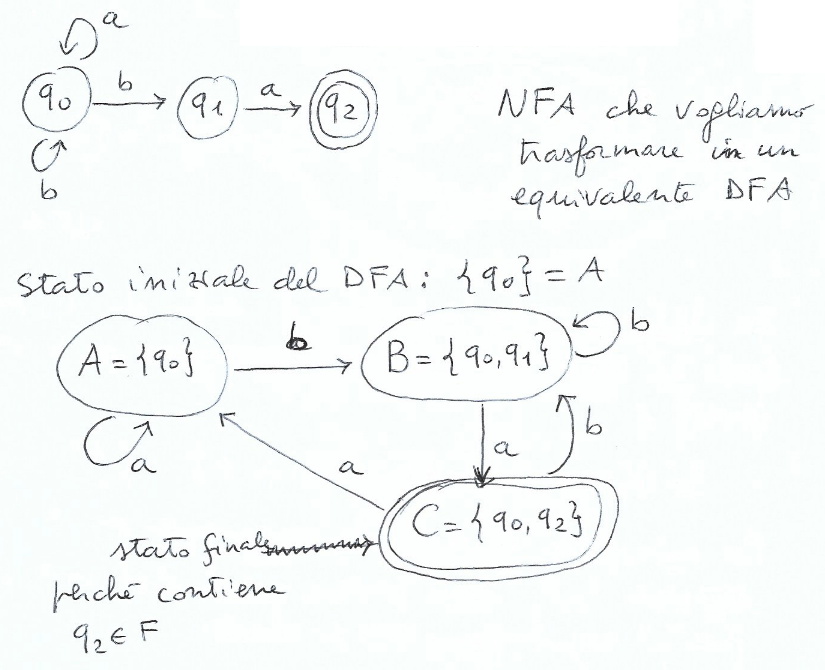 a
q0 b q1 a q2
b
NFA che vogliamo
trasformare in un
equivalente DFA
Stato iniziale del DFA: {q0} = A
A = {q0} b B = {q0, q1} b
a
a b
a
C = {q0, q2}
stato finale
perché contiene
q2 ∈ F